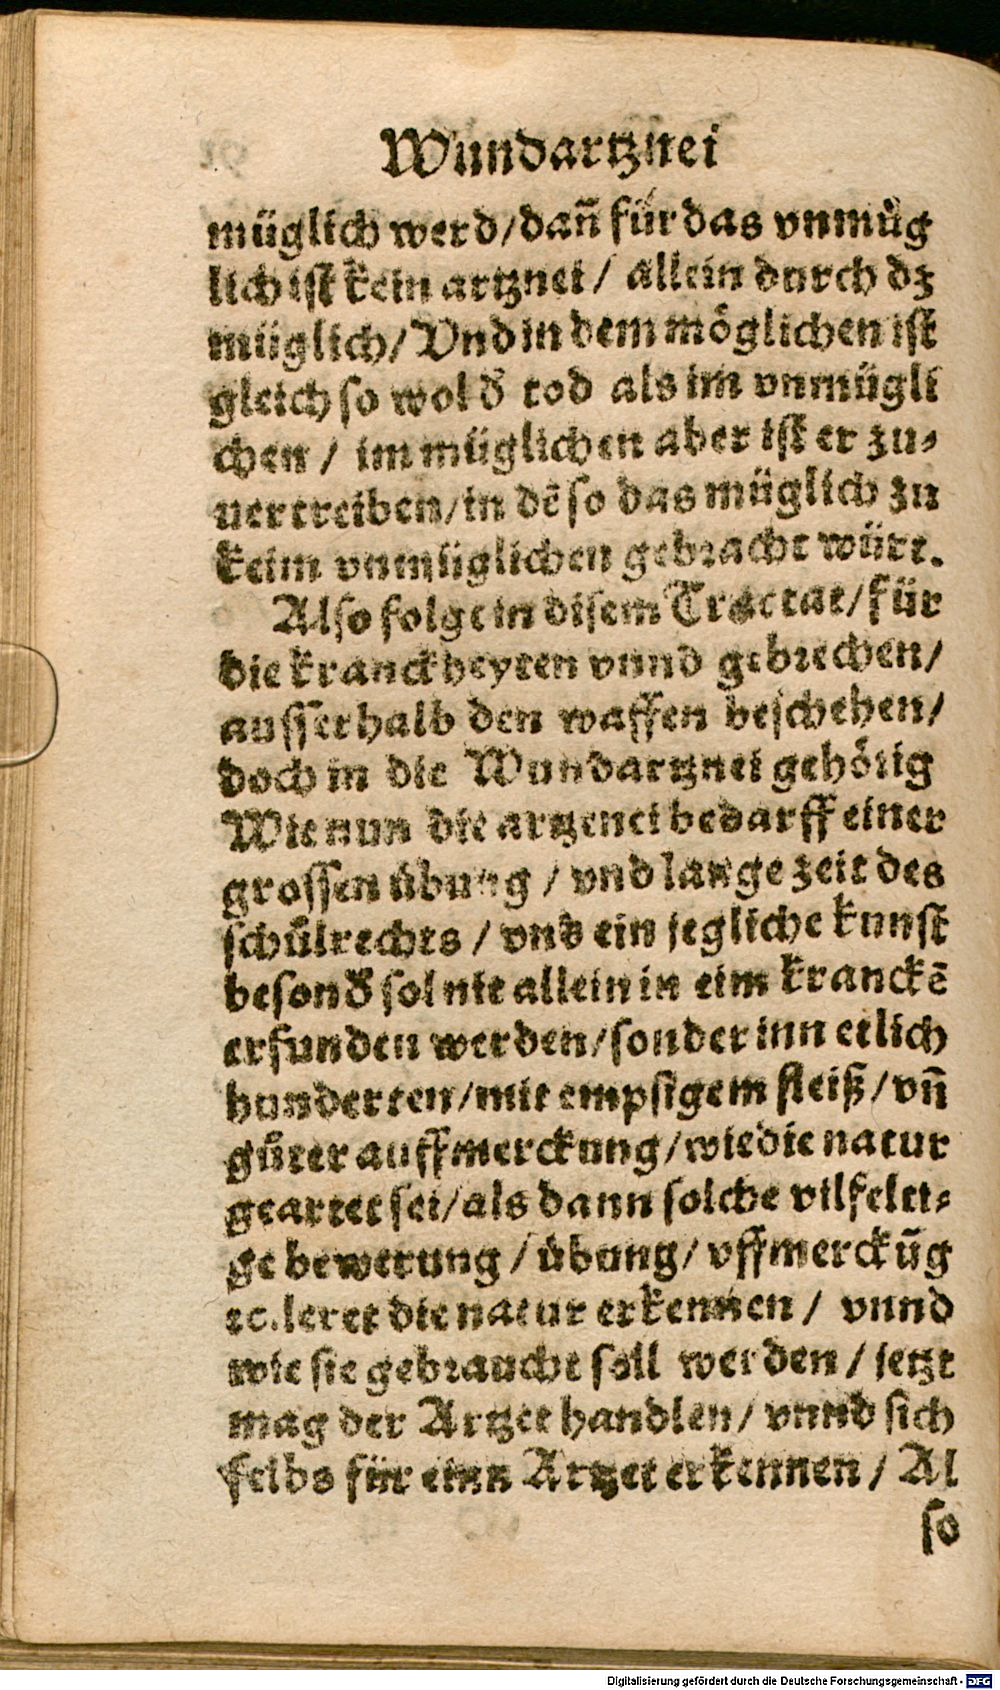 Wundartznei
müglich werd/dañ für das vnmüg
lich ist kein artznei/ allein durch dz
müglich/ Vnd in dem möglichen ist
gleich so wol d̄ tod als im vnmügli
chen / im müglichen aber ist er zu⸗
uertreiben/in dē so das müglich zu
keim vnmüglichen gebracht würt.
Also folgt in disem Tractat/ für
die kranckheyten vnnd gebrechen/
ausserhalb den waffen beschehen/
doch in die Wundartznei gehörig
Wie nun die artzenei bedarff einer
grossen übung / vnd lange zeit des
schůlrechts / vnd ein jegliche kunst
besond̄ sol nit allein in eim kranckē
erfunden werden/sonder inn etlich
hunderten/mit empsigem fleiß/ vñ
gůter auffmerckung/wie die natur
geartet sei/als dann solche vilfelti⸗
ge bewerung / übung/ vffmerckūg
ꝛc. leret die natur erkennen / vnnd
wie sie gebraucht soll werden / jetzt
mag der Artzet handlen/ vnnd sich
selbs für einn Artzet erkennen / Al
so
Digitalisierung gefördert durch die Deutsche Forschungsgemeinschaft - DFG